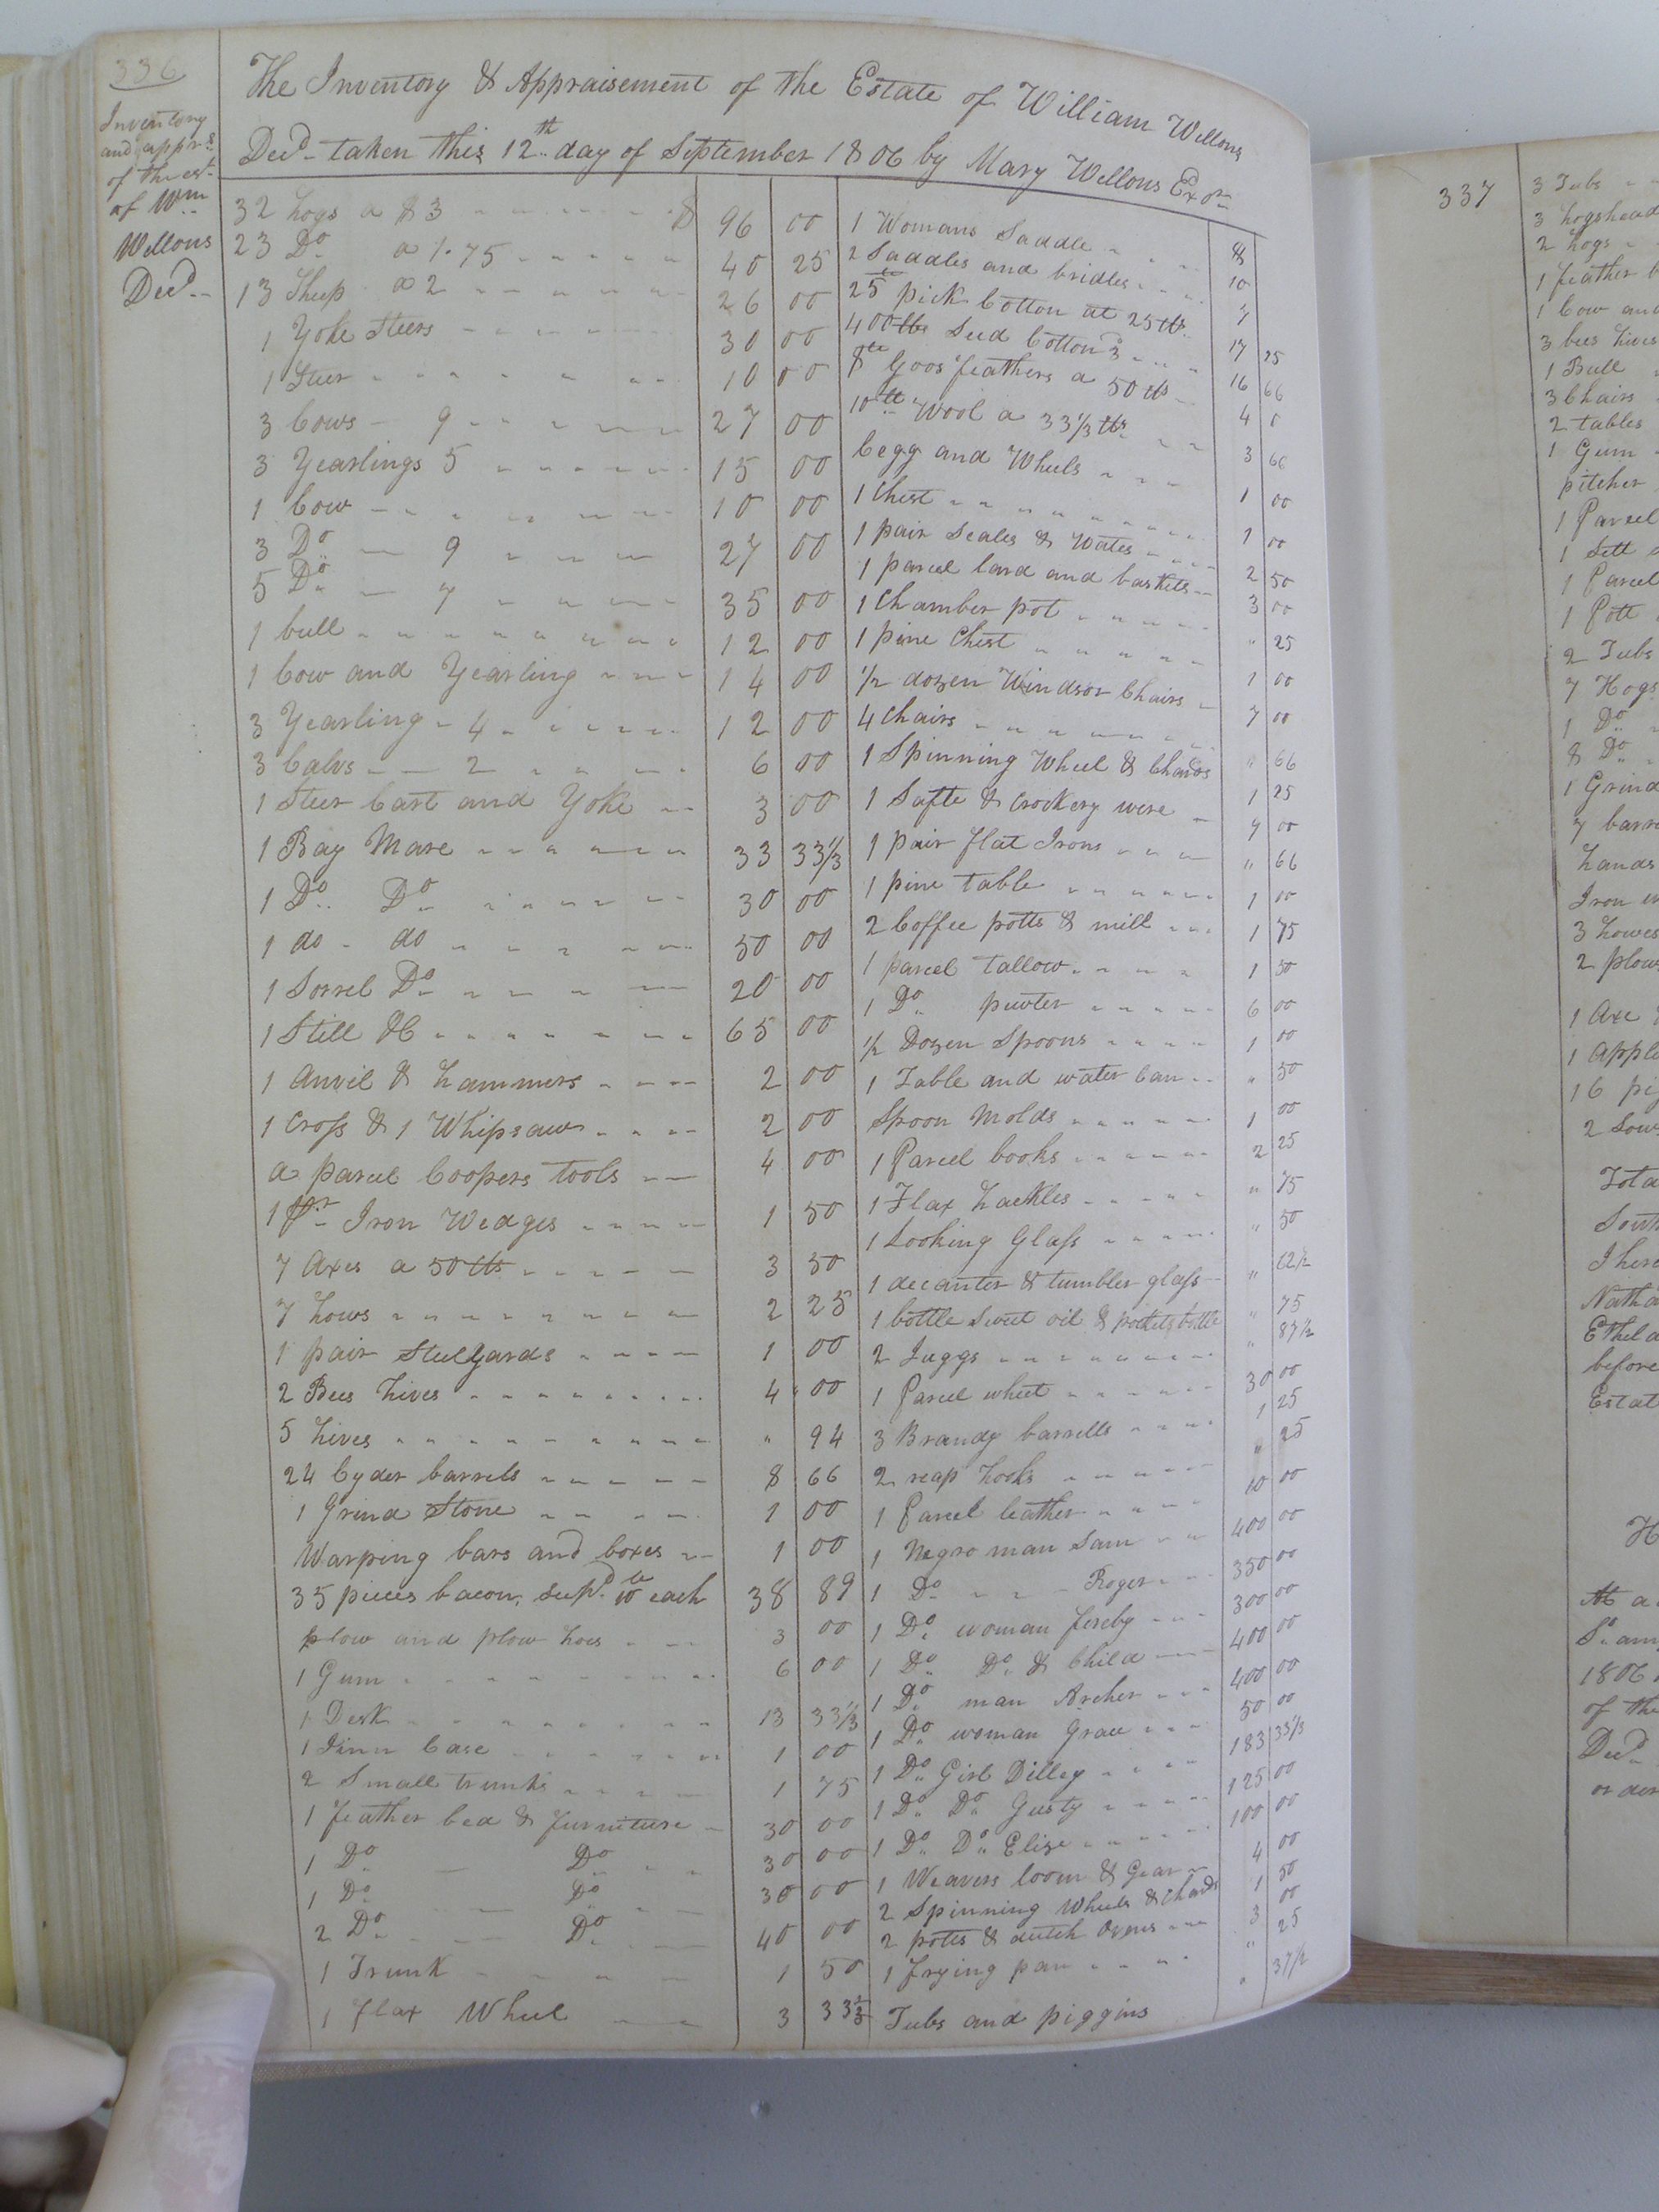 336
Inventory
and appr.s
of the est.
of Wm
Wellons
Decd
The Inventory & Appraisement of the Estate of William Wellons
Decd taken this 12th day of September 1806 by Mary Wellons Exor
32 hogs a $3 $ 96 00
23 Do a 1.75 40 25
13 Sheep a 2 26 00
1 Yoke Steers 30 00
1 Steer 10 00
3 Cows 9 27 00
3 Yearlings 5 15 00
1 Cow 10 00
3 Do 9 27 00
5 Do 7 35 00
1 bull 12 00
1 Cow and Yearling 14 00
3 Yearling 4 12 00
3 Calvs 2 6 00
1 Steer Cart and Yoke 3 00
1 Bay Mare 33 33 1/3
1 Do Do 30 00
1 do do 50 00
1 Sorrel Do 20 00
1 Still &C 65 00
1 Anvil & hammers 2 00
1 Cross & 1 Whipsaw 2 00
a parcel Coopers tools 4 00
1 Pr Iron Wedges 1 50
7 Axes a 50 cts 3 50
7 hows 2 25
1 pair Steelyards 1 00
2 Bees hives 4 00
5 hives " 94
24 Cyder barrels 8 66
1 Grind Stone 1 00
Warping bars and boxes 1 00
35 pieces bacon, supd. 10 lb each 38 89
plow and plow hoes 3 00
1 Gum 6 00
1 Desk 13 33 1/3
1 Case 1 00
2 Small trunks 1 75
1 feather bed & furniture 30 00
1 Do Do 30 00
1 Do Do 30 00
2 Do Do 40 00
1 Trunk 1 50
1 flax Wheel 3 33 1/3
1 Womans Saddle 8
2 Saddles and bridles 10
25 lb pick Cotton at 25 cts
400 lbs Seed Cotton 3 17 25
8 lb Goos feathers a 50 cts 16 66
10 lb Wool a 33 1/3 cts 4 0
Cegg and Wheels 3 66
1 Chest 1 00
1 pair Scales & Wates 1 00
1 parcel lard and baskets 2 50
1 Chamber pot 3 00
1 pine Chest " 25
1/2 dozen Windsor Chairs 1 00
4 Chairs 7 00
1 Spinning Wheel & Chards " 66
1 Safte & Crockery were 1 25
1 pair flat Irons 7 00
1 pine table " 66
2 Coffee potts & mill 1 00
1 parcel tallow 1 75
1 Do pewter 1 50
1/2 Dozen Spoons 6 00
1 Table and water Can 1 00
Spoon Molds " 50
1 Parcel books 1 00
1 Flax hackles 2 25
1 Looking Glass " 75
1 decanter & tumbler glass " 50
1 bottle Sweet oil & pockets bottle " 62 1/2
2 Juggs " 75
1 Parcel wheet " 87 1/2
3 Brandy barrells 30 00
2 reap hooks 1 25
1 Parcel leather " 25
1 Negro man Sam 10 00
1 Do Roger 400 00
1 Do woman fereby 350 00
1 Do Do & Child 300 00
1 Do man Archer 400 00
1 Do woman Grace 400 00
1 Do Girl Dilley 50 00
1 Do Do Gusty 183 33 1/3
1 Do Do Elize 125 00
1 Weavers loom & Gear 100 00
2 Spinning Wheels & Chards 4 00
2 potts & dutch Ovens 1 50
1 frying pan 3 00
Tubs and piggins " 25
" 37 1/2
337
3 Tubs
3 hogshead
2 hogs
1 feather
1 Cow and
3 bees hives
1 Bull
3 Chairs
2 tables
1 Gum
pitcher
1 Parcel
1 Sett
1 Parcel
1 Pott
2 Tubs
7 Hogs
1 Do
8 Do
1 Grind
7 barre
hands
Iron
3 howes
2 plow
1 Axe
1 Apple
16 pi
2 Sows
Tota
South
I here
Natha
Etheld
before
Estat
H
At a
1806
of the
Decd
order